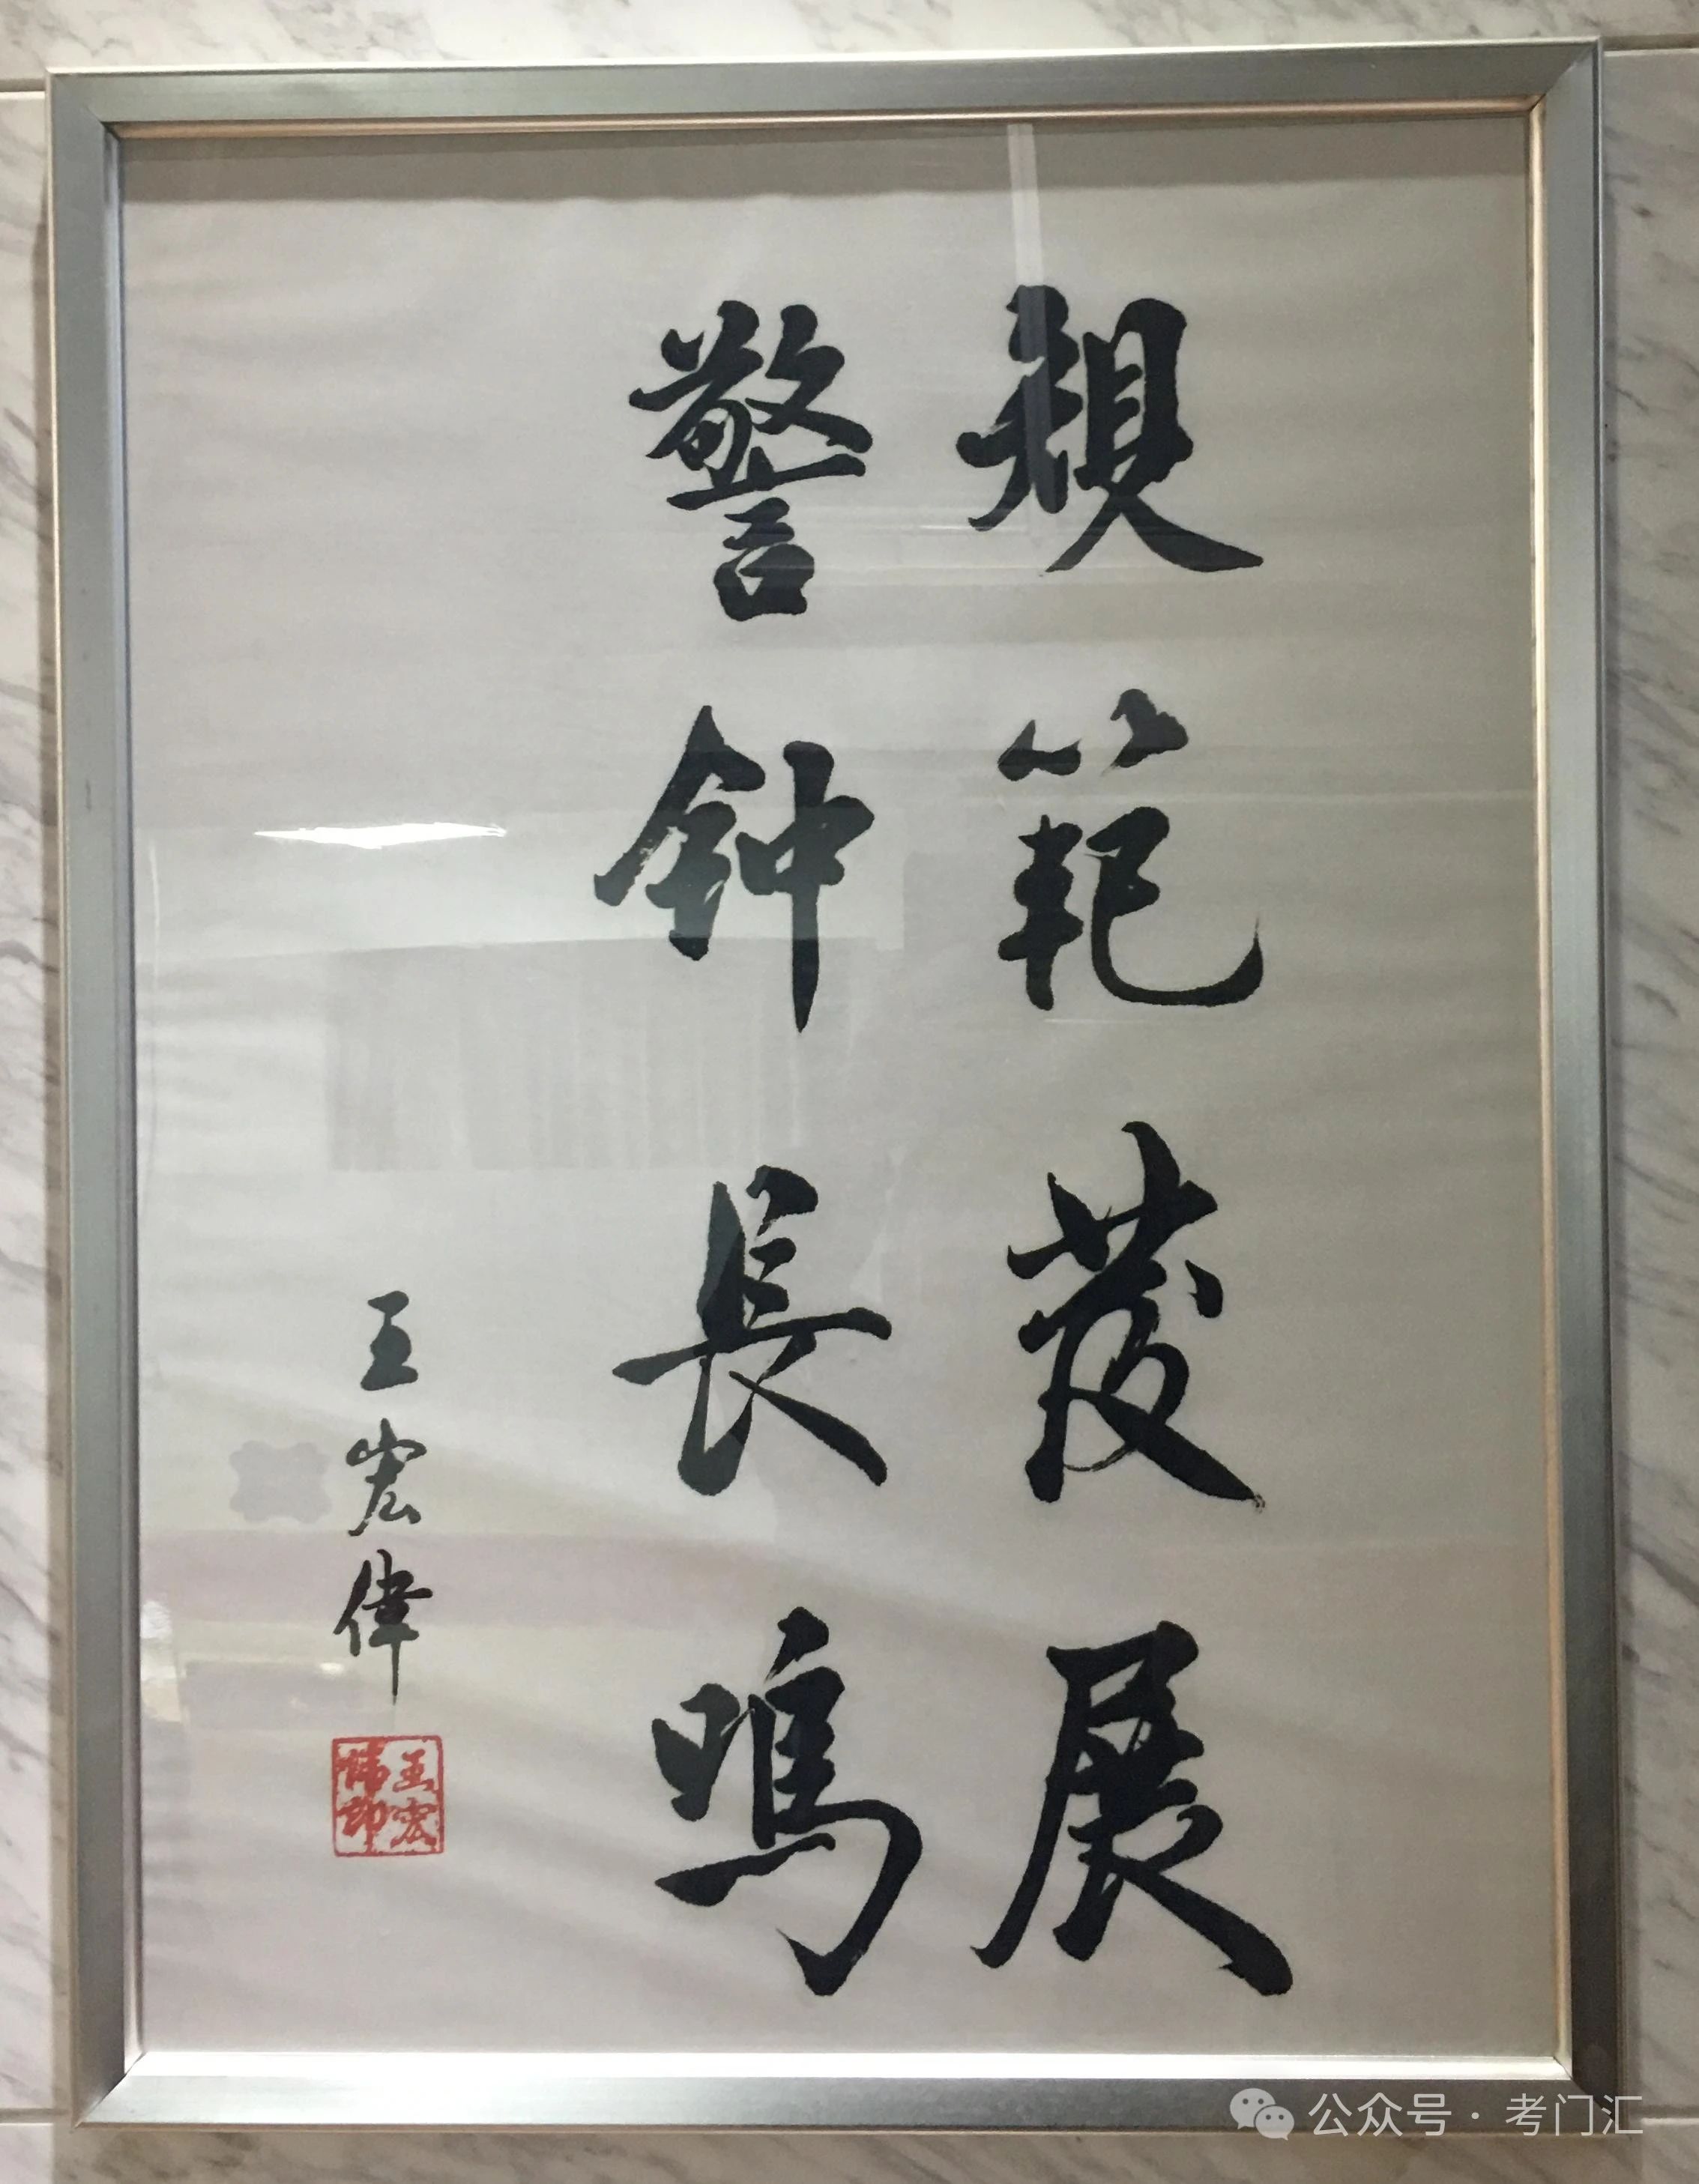 規範發展
警钟長鳴
王宏偉
王宏
偉印
公众号·考门汇